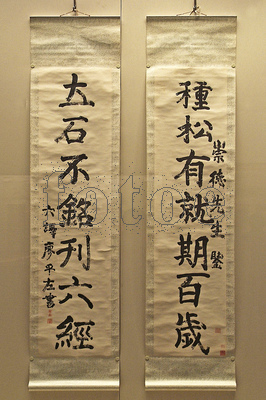 種松有就期百歲
崇德先生鑒
立石不銘刊六經
六譯廖平左書
fotoe